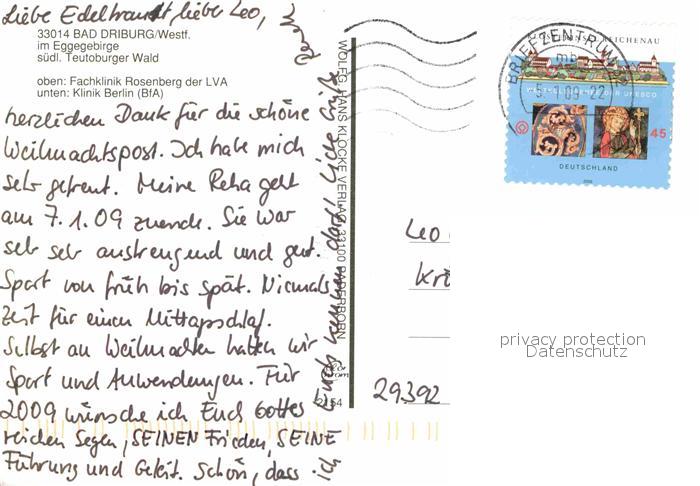 Liebe Edeltraudt lieber Leo,
33014 BAD DRIBURG/Westf.
im Eggegebirge
südl. Teutoburger Wald
oben: Fachklinik Rosenberg der LVA
unten: Klinik Berlin (BfA)
herzlichen Dank für die schöne
Weihnachtspost. Ich habe mich
sehr gefreut. Meine Reha geht
am 7.1.09 zuende. Sie war
sehr sehr anstrengend und gut.
Sport von früh bis spät. Niemals
Zeit für einen Mittagschlaf.
Selbst an Weihnachten hatten wir
Sport und Anwendungen. Für
2009 wünsche ich Euch Gottes
reichen Segen, SEINEN Frieden, SEINE
Führung und Geleit. Schön, dass ich
Euch kennen darf! Liebe Grüße
WOLFG. HANS KLOCKE VERLAG, 33100 PADERBORN
2154
BRIEFZENTRUM
mb
09-22
KLOSTERINSEL REICHENAU
WELTKULTURERBE DER UNESCO
45
DEUTSCHLAND
2008
Leo
29392
privacy protection
Datenschutz